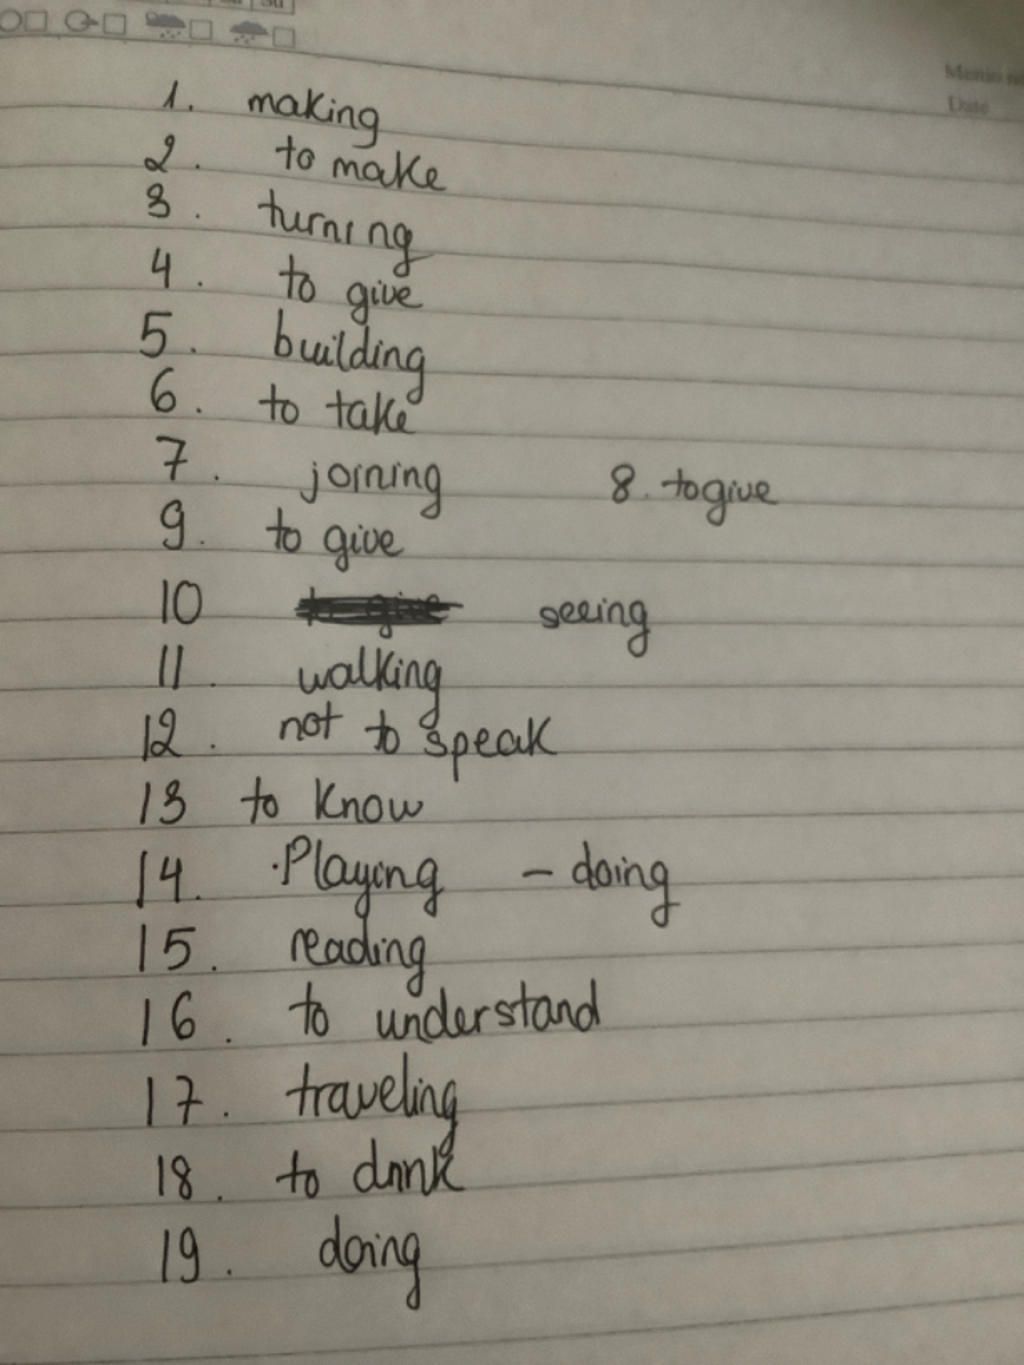 Memo no
Date
1. making
2. to make
3. turning
4. to give
5. building
6. to take
7. joining 8. to give
9. to give
10 seeing
11. walking
12. not to speak
13 to know
14. Playing - doing
15. reading
16. to understand
17. traveling
18. to drink
19. doing